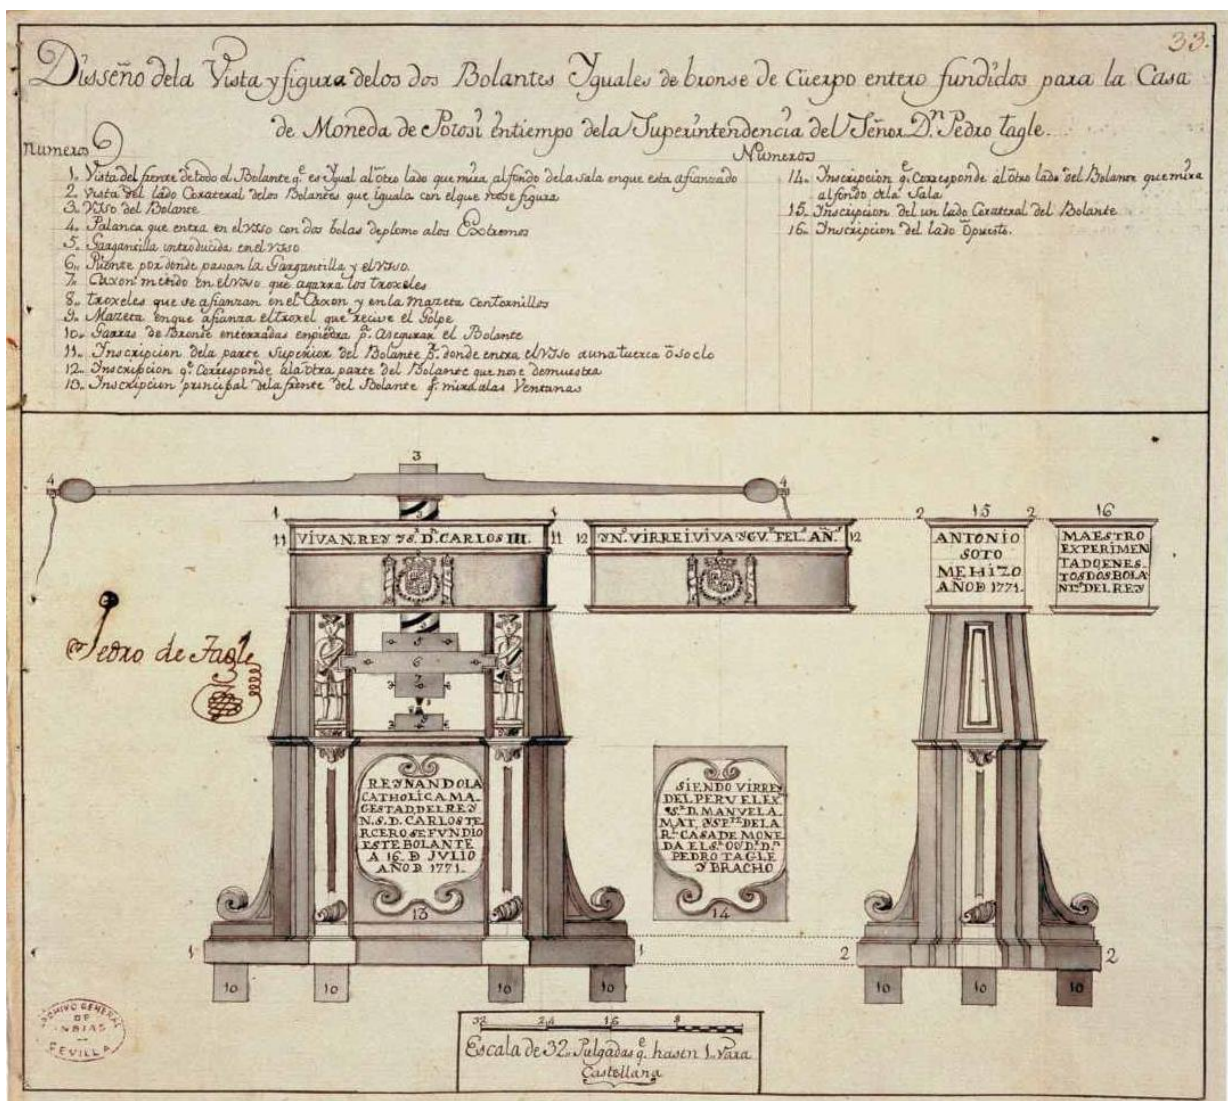 33.
Disseño dela Vista y figura delos dos Bolantes Yguales de bronse de Cuerpo entero fundidos para la Casa
de Moneda de Potosi entiempo dela Superintendencia del Señor Dn. Pedro tagle.
Numeros
1. Vista del frente de todo el Bolante qe. es Ygual al otro lado que mira al fondo dela sala enque esta afianzado
2. Vista del lado Corateral delos Bolantes que iguala con elque nose figura
3. VSso del Bolante
4. Palanca que entra en el VSso con dos bolas deplomo alos Extremos
5. Gargantilla introducida en el VSso
6. Puente por donde passan la Gargantilla y el VSso.
7. Caxon metido en el VSso que agarra los troxeles
8. troxeles que se afianzan en el Caxon y en la Mazeta Contornillos
9. Mazeta enque afianza el troxel que recive el Golpe
10. Garras de Bronse enterradas enpiedra pa. Asegurar el Bolante
11. Inscripcion dela parte Superior del Bolante pr. donde entra el VSso auna tuerca o soclo
12. Inscripcion qe. Corresponde ala otra parte del Bolante que nose demuestra
13. Inscripcion principal dela frente del Bolante qe. mira alas Ventanas
Numeros
14. Inscripcion qe. Corresponde al otro lado del Bolante que mira
al fondo dela Sala
15. Inscripcion del un lado Corateral del Bolante
16. Inscripcion del lado opuesto.
3
4 4
1 1 2 15 2 16
11 VIVA N. REY Y S. D. CARLOS III. 11
12 Y Nº. VIRREI VIVA Y GVe. FELs. AÑs. 12
ANTONIO
SOTO
ME HIZO
AÑO D 1771.
MAESTRO
EXPERIMEN
TADO EN ES-
TOS DOS BOLA-
NTs. DEL REY
Pedro de Tagle
5
6
7
8
9
REYNANDO LA
CATHOLICA MA-
GESTAD, DEL REY
N. S. D. CARLOS TE-
RCERO SE FVNDIO
ESTE BOLANTE
A 16 D JVLIO
AÑO D 1771.
13
SIENDO VIRREY
DEL PERV EL EXo.
Sr. D. MANVEL A-
MAT, Y SPte. DE LA
Rl. CASA DE MONE
DA EL Sr. OYDr. Dn.
PEDRO TAGLE
Y BRACHO
14
1 1 2 2
10 10 10 10 10 10 10
32 24 16 8
Escala de 32. Pulgadas qe. hasen 1. Vara
Castellana
ARCHIVO GENERAL
DE
INDIAS
SEVILLA